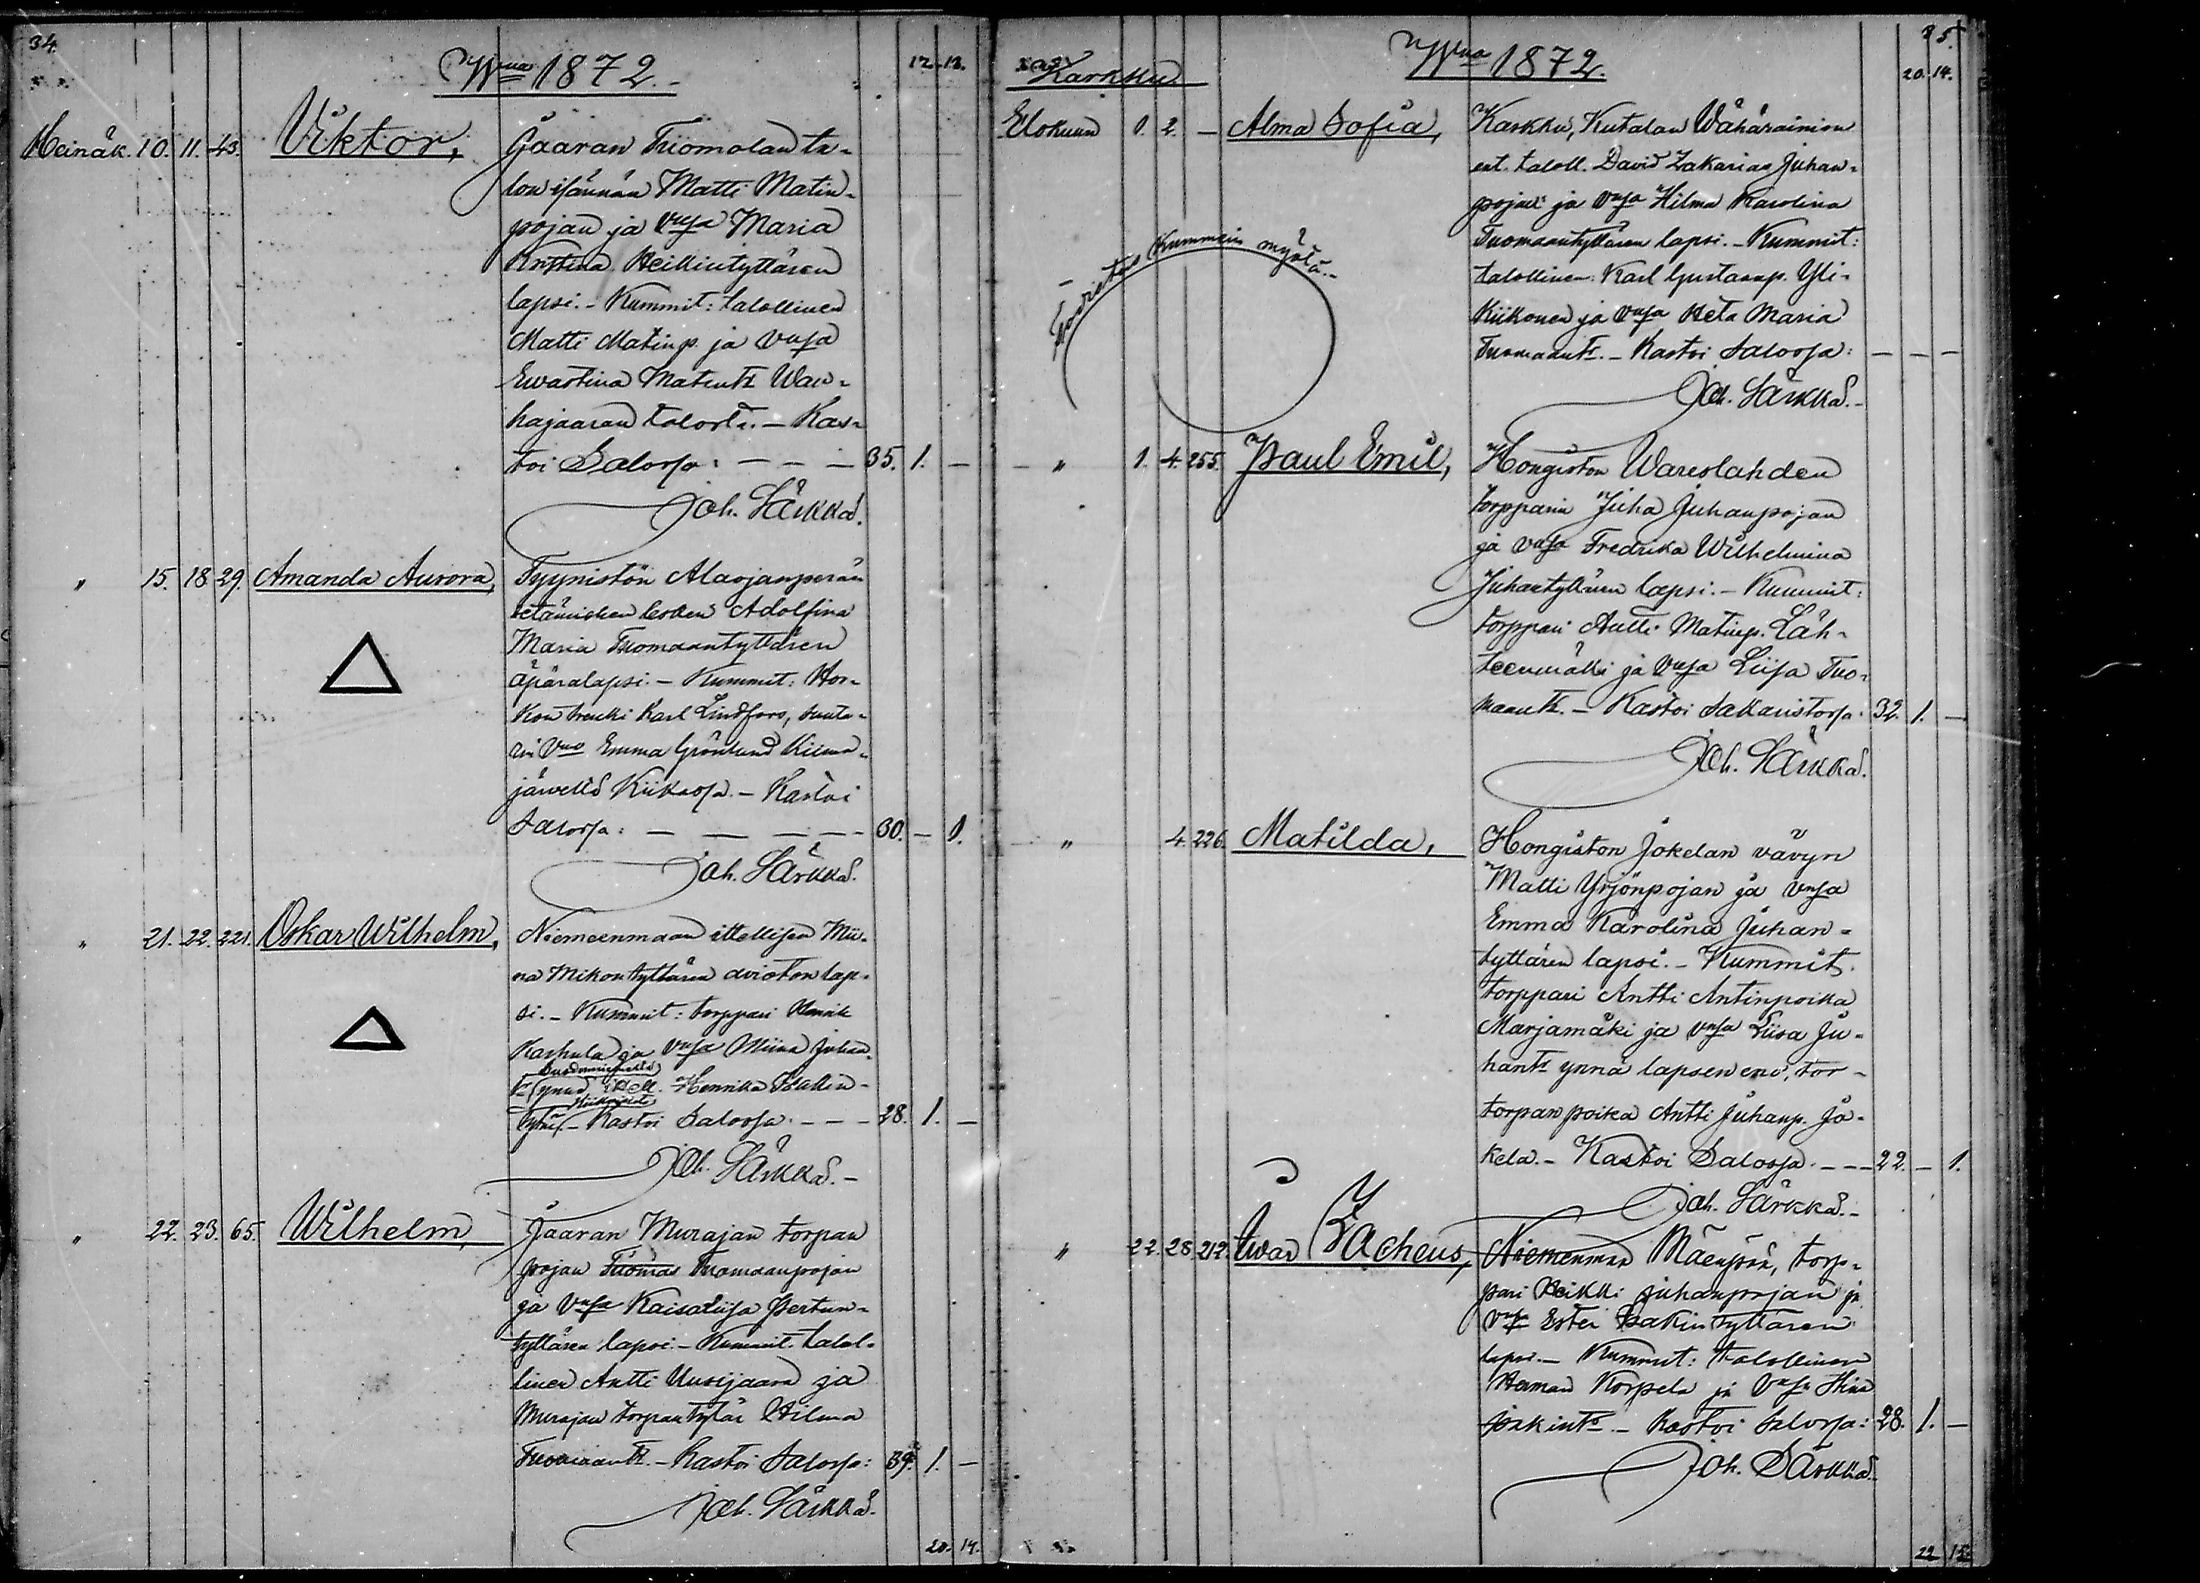 34.
Wna 1872.
17. 13.
Heinäk. 10. 11. 43. Viktor,
Jaaran Tuomolan ta-
lon isännän Matti Matin-
pojan ja Vnsa Maria
Kristina Heikintyttären
lapsi. - Kummit: talollinen
Matti Matinp. ja Vnsa
Ewastina Matintr Wan-
hajaaran talosta. - Kas-
toi Salossa: - - - 35. 1. -
Joh. Särkkä.
" 15. 18. 29. Amanda Aurora,
Tyynistön Alaojanperän
lesken Adolfina
Maria Tuomaantyttären
äpärälapsi. - Kummit: Hor-
Karl Lindfors, sunta-
rin Vmo Emma Grönlund Kilwa-
järweltä Kiikassa. - Kastoi
Salossa: - - - - 30. - 1.
Joh. Särkkä.
" 21. 22. 221. Oskar Wilhelm,
Niemeenmaan itellisen Mii-
na Mikontyttären avioton lap-
si. - Kummit: torppari Henrik
Karhula ja Vnsa Miina Juhan-
tr ynnä itell. Henrika Isakin-
tytär. - Kastoi Salossa: - - - 28. 1. -
Joh. Särkkä. -
" 22. 23. 65. Wilhelm,
Jaaran Murajan torpan
pojan Tuomas Tuomaanpojan
ja Vnsa Kaisaliisa Pertun-
tyttären lapsi. - Kummit. talol-
linen Antti Uusijaara ja
Murajan torpantytär Hilma
Tuomaantr. - Kastoi Salossa: 39. 1. -
Joh. Särkkä.
20. 14.
35.
Wna 1872.
20. 14.
Karkku
Elokuun 1. 2. - Alma Sofia,
Karkku, Kutalan Wähärainion
ent. taloll. David Zakarias Juhan-
pojan ja Vnsa Hilma Karolina
Tuomaantyttären lapsi. - Kummit:
talollinen: Karl Gustaanp. Yli-
Kiikonen ja Vnsa Heta Maria
Tuomaantr. - Kastoi Salossa: - - -
Joh. Särkkä. -
Kummein myötä. -
" 1. 4. 255. Paul Emil,
Hongiston Wareslahden
torpparin Juha Juhanpojan
ja Vnsa Fredrika Wilhelmina
Juhantyttären lapsi. - Kummit:
torppari Antti Matinp. Läh-
teenmäki ja Vnsa Liisa Tuo-
maantr. - Kastoi Sakaristossa: 32. 1. -
Joh. Särkkä.
" 4. 226. Matilda,
Hongiston Jokelan vävyn
Matti Yrjönpojan ja Vnsa
Emma Karolina Juhan-
tyttären lapsi. - Kummit.
torppari Antti Antinpoika
Marjamäki ja Vnsa Liisa Ju-
hantr ynnä lapsen eno, tor-
torpanpoika Antti Juhanp. Jo-
kela. - Kastoi Salossa. - - - 22. - 1.
Joh. Särkkä. -
" 22. 28. 212. Iwar Zacheus,
Niemenmaa Mäenpää, torp-
pari Heikki Juhanpojan ja
Vnsa Ester Isakintyttären
lapsi. - Kummit: talollinen
Herman Korpela ja Vnsa Stina
Isakintr. - Kastoi Salossa: 28. 1. -
Joh. Särkkä.
22 15.